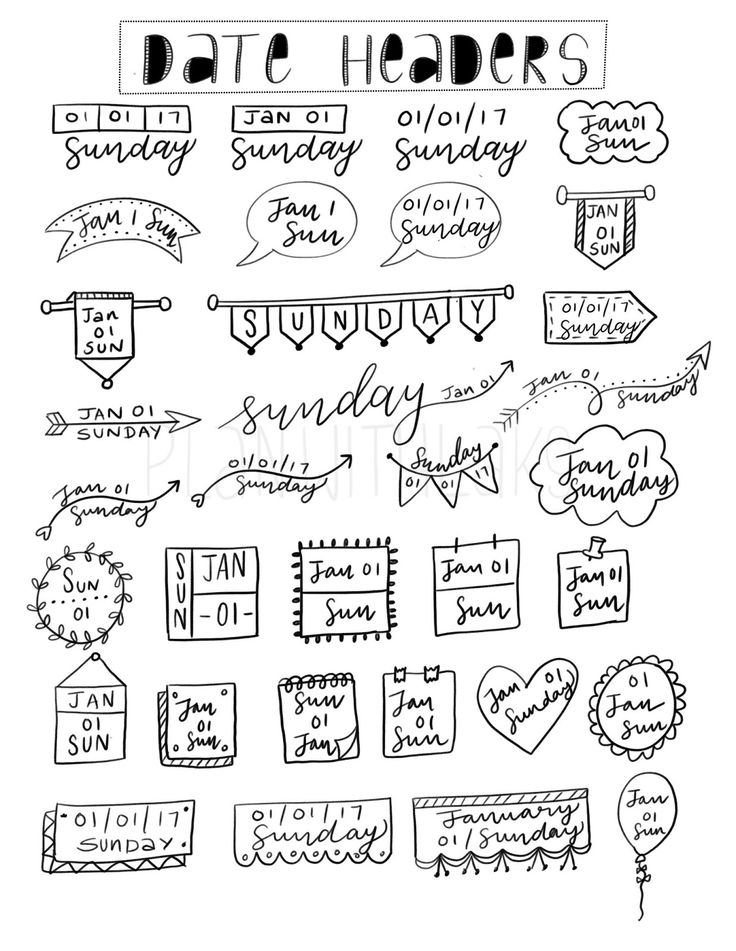 DATE HEADERS
01 01 17
Sunday
JAN 01
Sunday
01/01/17
Sunday
Jan 01
Sun
Jan 1 Sun
Jan 1
Sun
01/01/17
Sunday
JAN
01
SUN
Jan
01
SUN
SUNDAY
01/01/17
Sunday
JAN 01
SUNDAY
Sunday
Jan 01
Jan 01
Sunday
PLANWITHLAKS
Jan 01
Sunday
01/01/17
Sunday
Sunday
01 01 17
Jan 01
Sunday
Sun
01
SUN
JAN
-01-
Jan 01
Sun
Jan 01
Sun
Jan 01
Sun
JAN
01
SUN
Jan
01
Sun
Sun
01
Jan
Jan
01
Sun
Jan 01
Sunday
01
Jan
Sun
01/01/17
SUNDAY
01/01/17
Sunday
January
01/Sunday
Jan
01
Sun